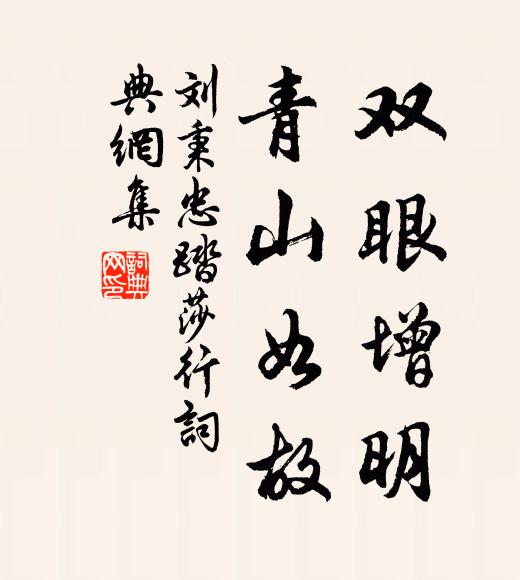 双眼增明
青山如故
刘秉忠踏莎行词
典網集
詞典网印